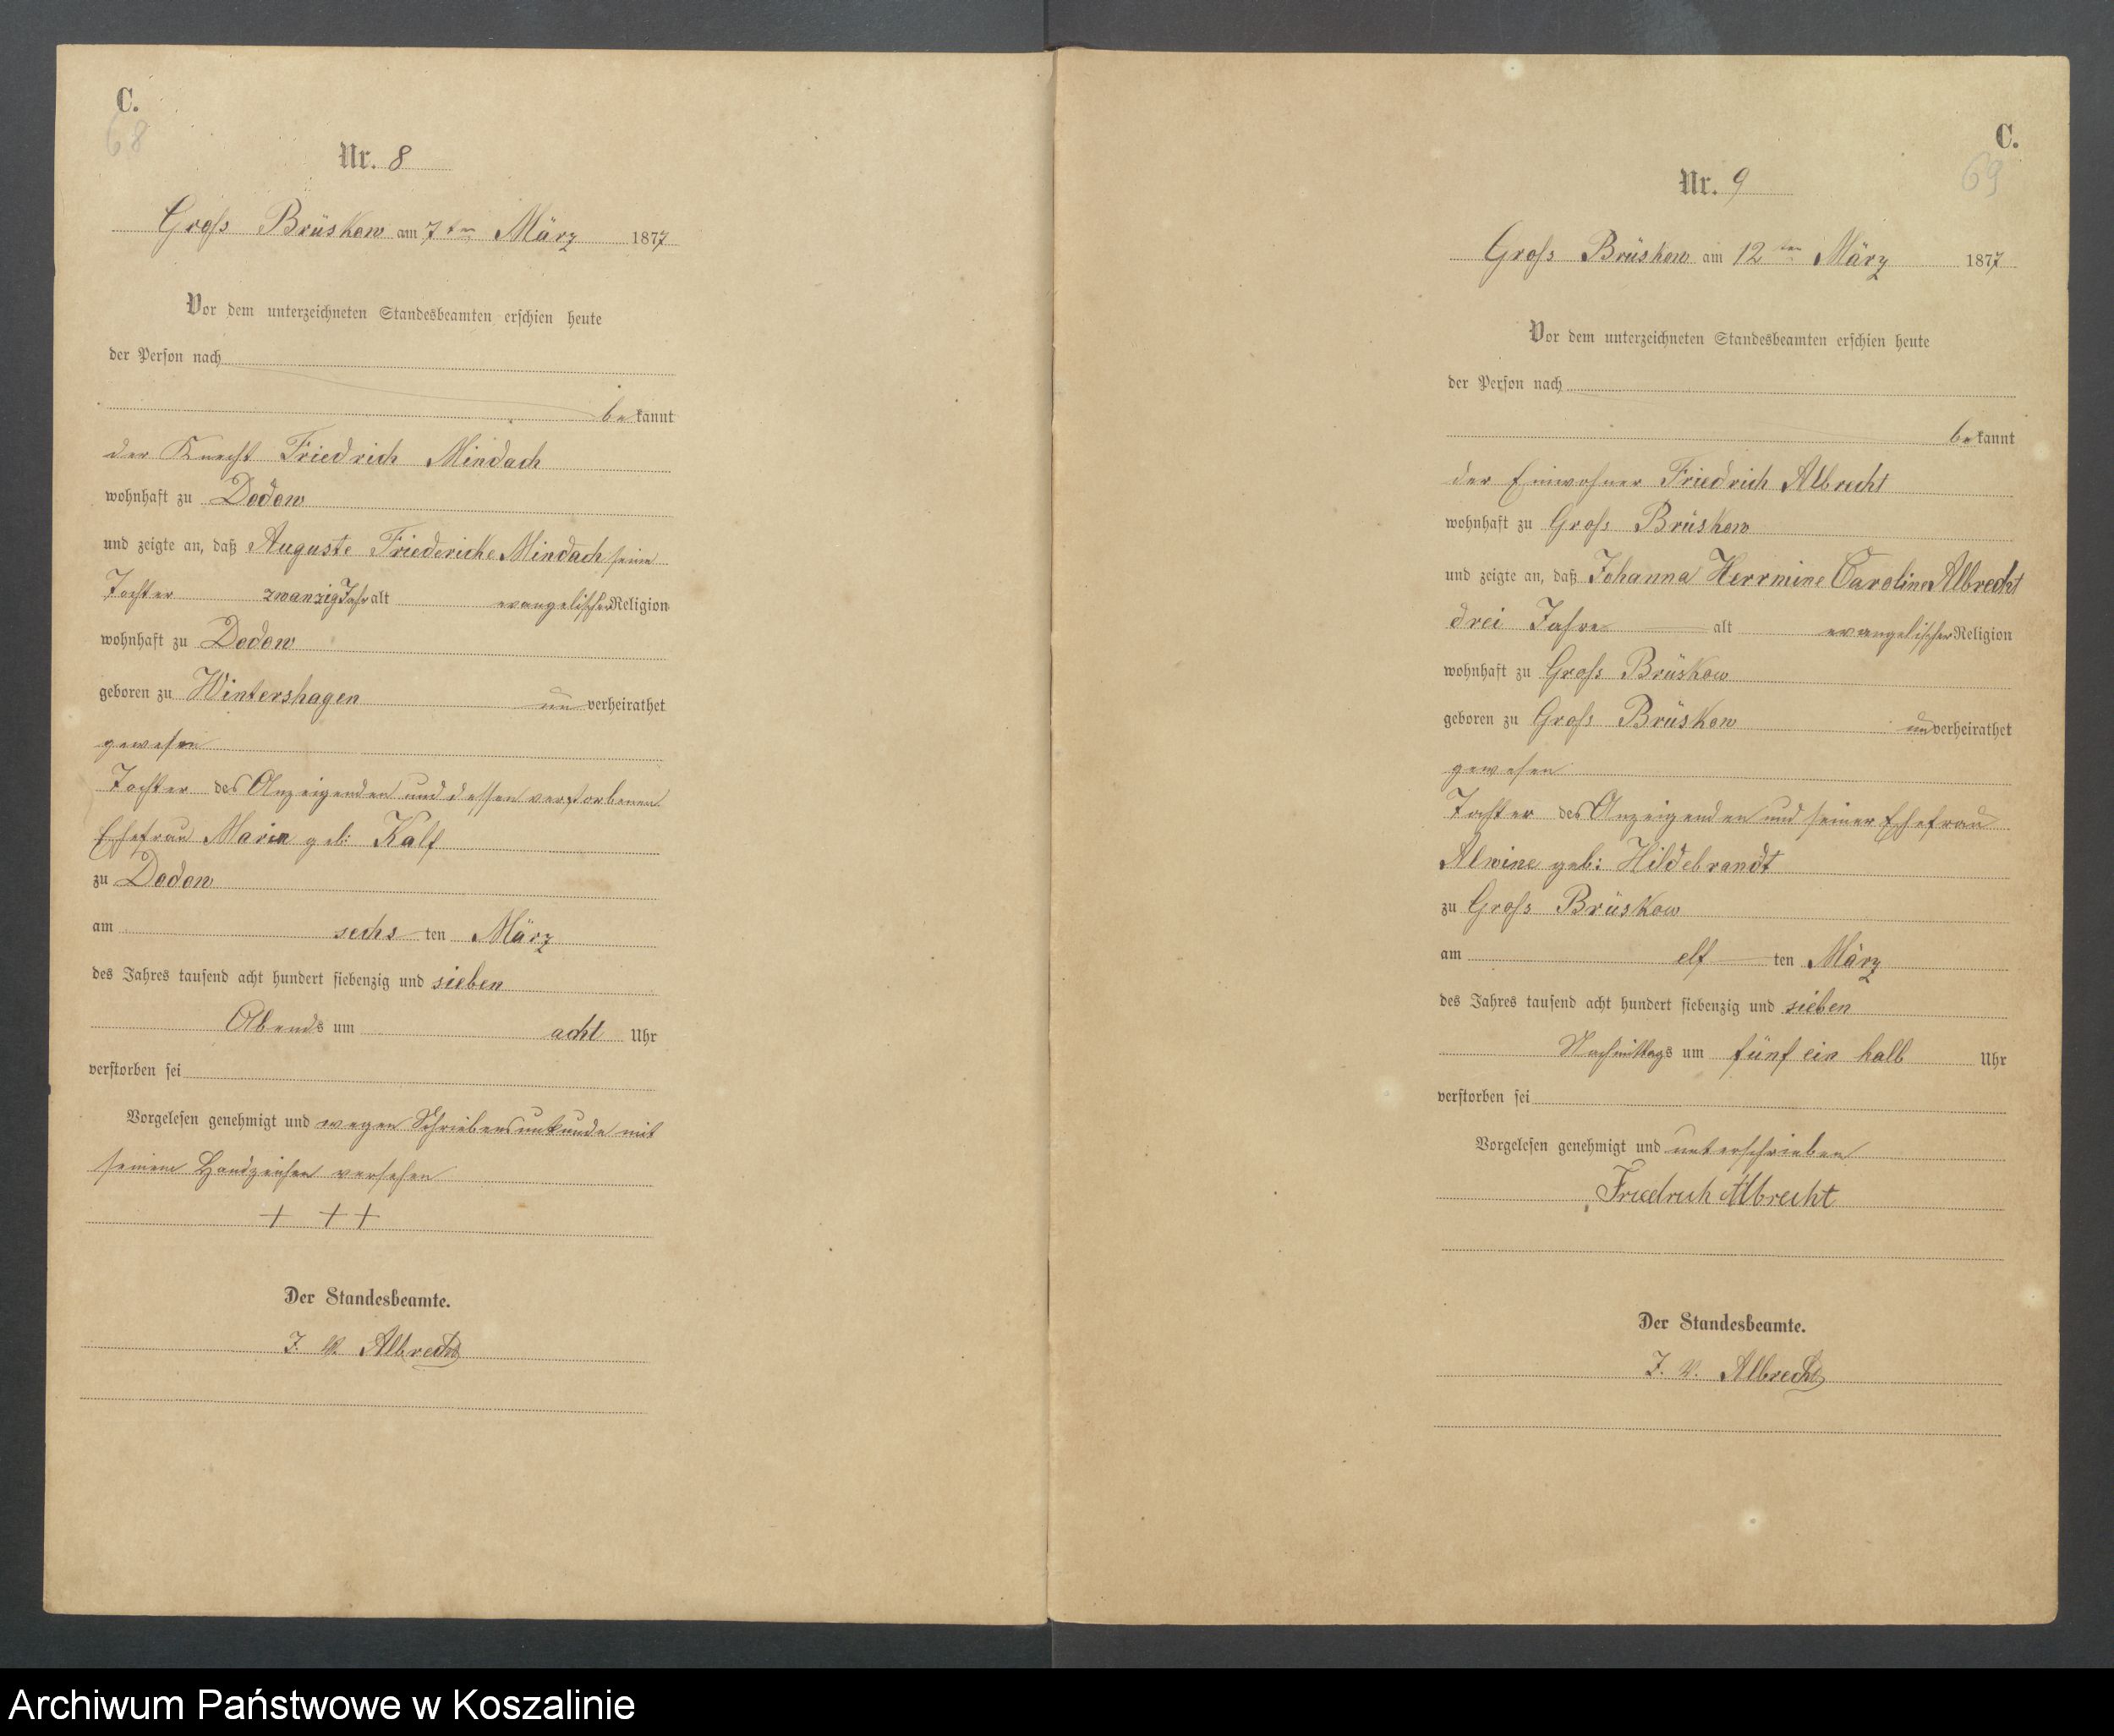 C.
68
Nr. 8
Groſs Brüskow am 7ten März 1877
Vor dem unterzeichneten Standesbeamten erschien heute
der Person nach
bekannt
der Knecht Friedrich Mindach
wohnhaft zu Dodow
und zeigte an, daß Auguste Friedericke Mindach seine
Tochter zwanzig Jahr alt evangelischer Religion
wohnhaft zu Dodow
geboren zu Wintershagen unverheirathet
gewesen
Tochter des Anzeigenden und dessen verstorbenen
Ehefrau Marie geb: Kalf
zu Dodow
am sechsten März
des Jahres tausend acht hundert siebenzig und sieben
Abends um acht Uhr
verstorben sei
Vorgelesen genehmigt und wegen Schriebensunkunde mit
seinem Handzeichen versehen
+ + +
Der Standesbeamte.
J. V. Albrecht
C.
69
Nr. 9
Groſs Brüskow am 12ten März 1877
Vor dem unterzeichneten Standesbeamten erschien heute
der Person nach
bekannt
der Einwohner Friedrich Albrecht
wohnhaft zu Groſs Brüskow
und zeigte an, daß Johanna Herrmine Caroline Albrecht
drei Jahre alt evangelischer Religion
wohnhaft zu Groſs Brüskow
geboren zu Groſs Brüskow unverheirathet
gewesen
Tochter des Anzeigenden und seiner Ehefrau
Alwine geb: Hildebrandt
zu Groſs Brüskow
am elften März
des Jahres tausend acht hundert siebenzig und sieben
Nachmittags um fünf ein halb Uhr
verstorben sei
Vorgelesen genehmigt und unterschrieben
Friedrich Albrecht
Der Standesbeamte.
J. V. Albrecht
Archiwum Państwowe w Koszalinie